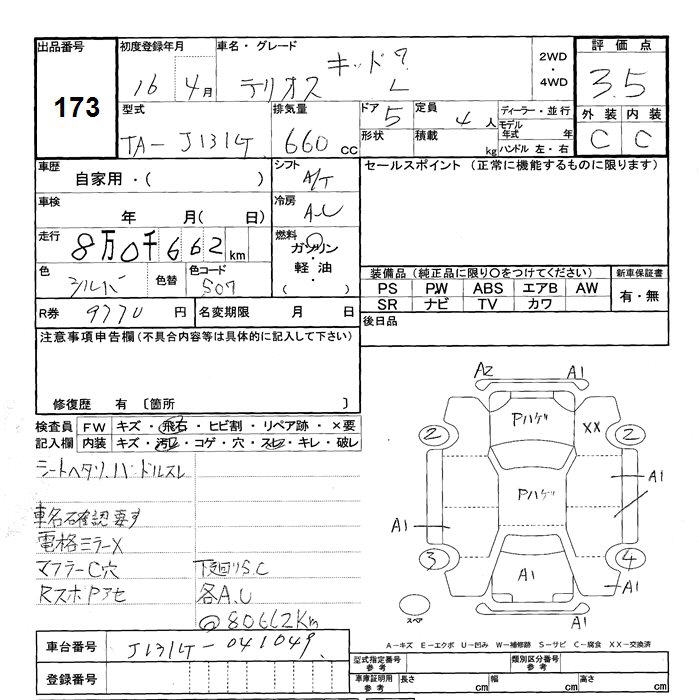 出品番号 初度登録年月 車名・グレード 2WD・4WD 評価点
173 16 4月 テリオス キッド L 3.5
型式 排気量 ドア 定員 ディーラー・並行 外装 内装
TA-J131G 660cc 5 4人 モデル年式 年 C C
形状 積載 kg ハンドル 左・右
車歴 シフト セールスポイント (正常に機能するものに限ります)
自家用・( ) A/T
車検 冷房
年 月(日) A.C
走行 燃料
8万0千662km ガソリン・軽油・( )
色 色替 色コード 装備品 (純正品に限り○をつけてください) 新車保証書
シルバ S07 PS PW ABS エアB AW 有・無
SR ナビ TV カワ
R券 9770円 名変期限 月 日 後日品
注意事項申告欄(不具合内容等は具体的に記入して下さい)
修復歴 有 〔箇所 〕
検査員 FW キズ・飛石・ヒビ割・リペア跡・×要
記入欄 内装 キズ・汚レ・コゲ・穴・スレ・キレ・破レ
シートヘタリ.ハンドルスレ
車名確認要す
電格ミラーX
マフラーC穴 下廻りS.C
RスポPアセ 各A.U
@80662Km
A2 A1
Pハゲ XX
2 2
Pハゲ A1
A1
3 4
A1 A1
スペア
A-キズ E-エクボ U-凹み W-補修跡 S-サビ C-腐食 XX-交換済
車台番号 J131G-041049
登録番号
型式指定番号 参考 類別区分番号 参考
車庫証明用 参考 長さ cm 幅 cm 高さ cm